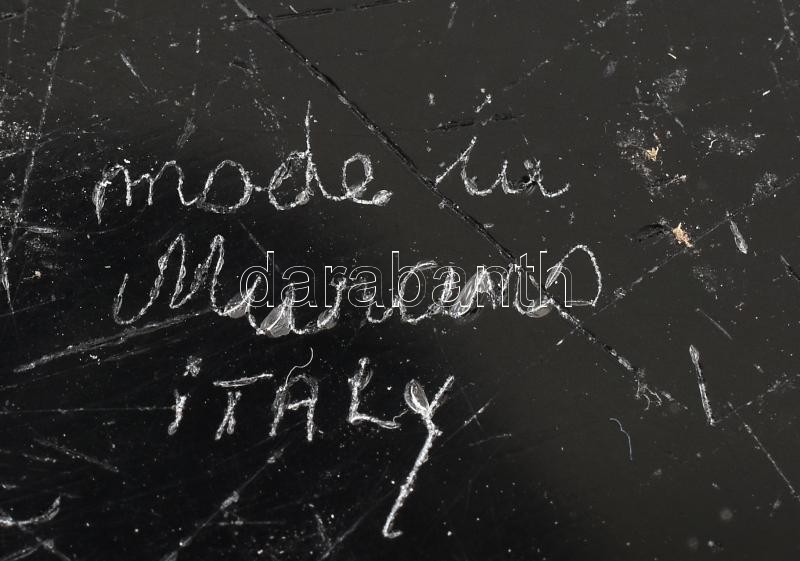 made in
Murano
darabanth
iTALY